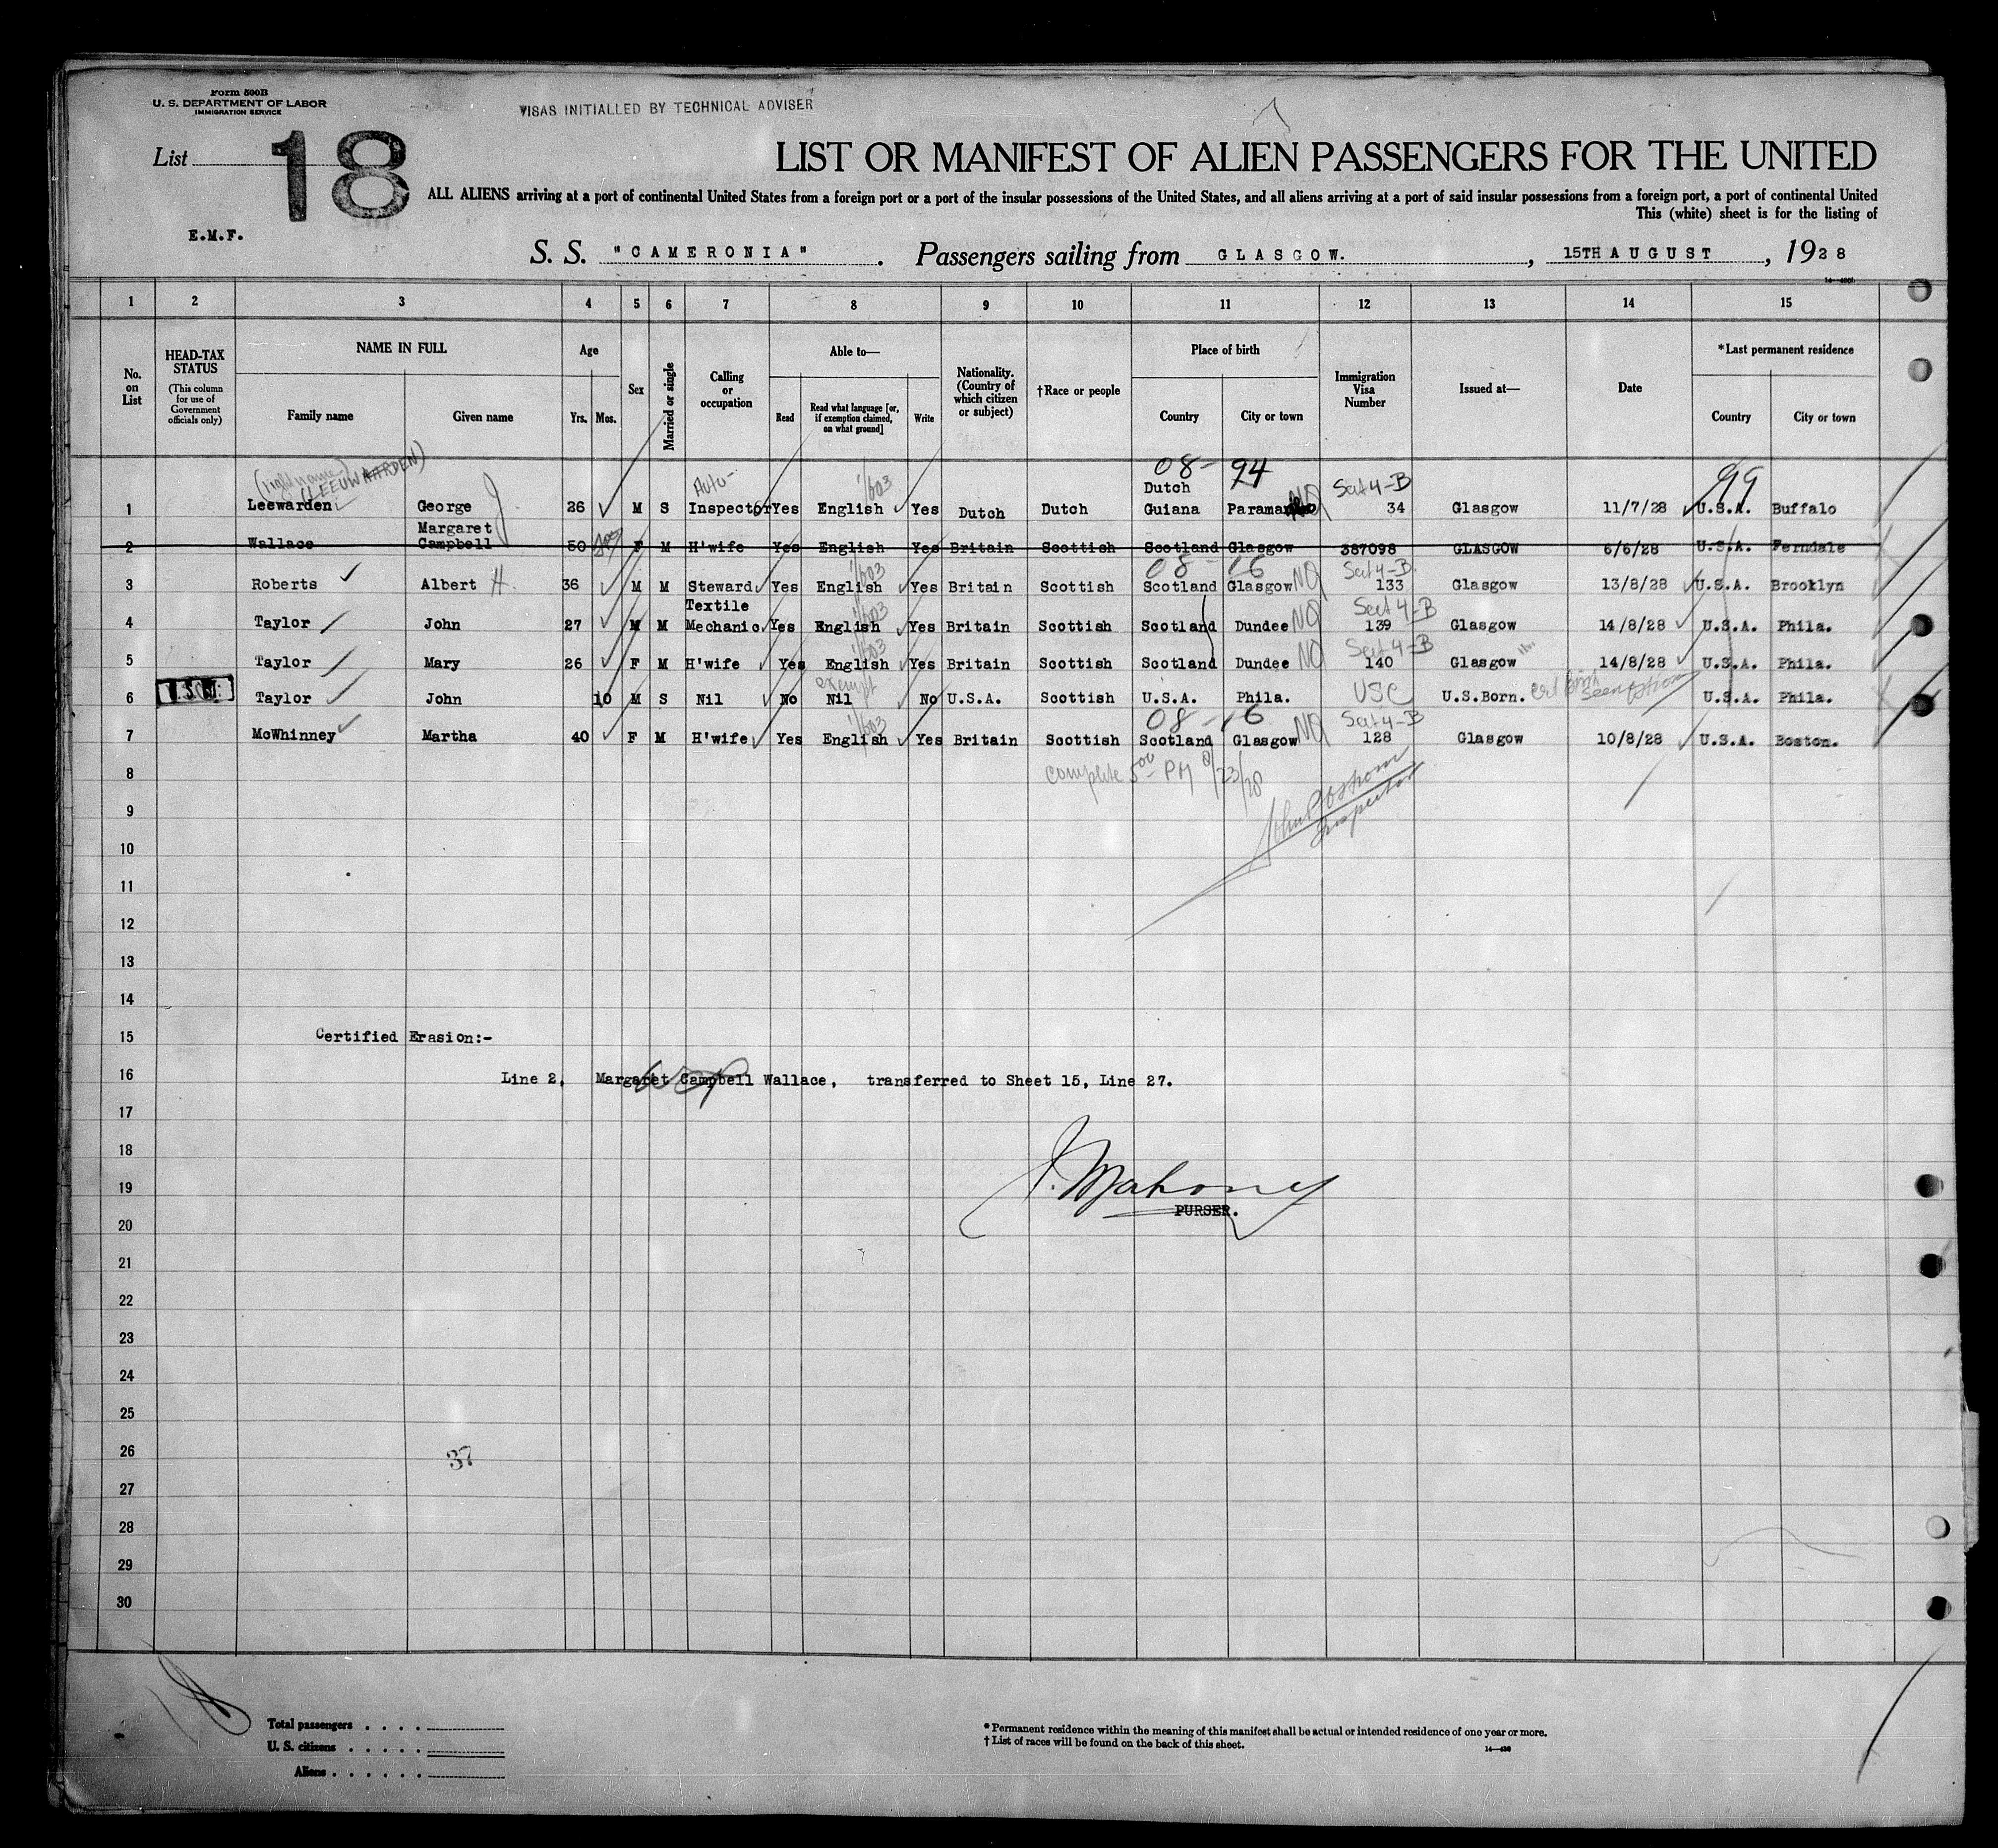 Form 500B
U. S. DEPARTMENT OF LABOR
IMMIGRATION SERVICE
VISAS INITIALLED BY TECHNICAL ADVISER
List 18
LIST OR MANIFEST OF ALIEN PASSENGERS FOR THE UNITED
ALL ALIENS arriving at a port of continental United States from a foreign port or a port of the insular possessions of the United States, and all aliens arriving at a port of said insular possessions from a foreign port, a port of continental United
This (white) sheet is for the listing of
E.M.F.
S. S. "CAMERONIA". Passengers sailing from GLASGOW., 15TH AUGUST, 1928
1 2 3 4 5 6 7 8 9 10 11 12 13 14 15
No. on List
HEAD-TAX STATUS
(This column for use of Government officials only)
NAME IN FULL
Family name Given name
Age
Yrs. Mos.
Sex
Married or single
Calling or occupation
Able to—
Read
Read what language [or, if exemption claimed, on what ground]
Write
Nationality. (Country of which citizen or subject)
†Race or people
Place of birth
Country City or town
Immigration Visa Number
Issued at—
Date
*Last permanent residence
Country City or town
(right name)
(LEEUWAARDEN)
Auto- 1/603 08- 94 Sect 4-B 99
1 Leewarden George J 26 M S Inspector Yes English Yes Dutch Dutch Dutch Guiana NQ 34 Glasgow 11/7/28 U.S.A. Buffalo
2 Wallace Margaret Campbell 50 F M H'wife Yes English Yes Britain Scottish Scotland Glasgow 387098 GLASGOW 6/6/28 U.S.A. Ferndale
1/603 08-16 Sect 4-B
3 Roberts Albert H. 36 M M Steward Yes English Yes Britain Scottish Scotland Glasgow NQ 133 Glasgow 13/8/28 U.S.A. Brooklyn
1/603 Sect 4-B
4 Taylor John 27 M M Textile Mechanic. Yes English Yes Britain Scottish Scotland Dundee NQ 139 Glasgow 14/8/28 U.S.A. Phila.
1/603 Sect 4-B
5 Taylor Mary 26 F M H'wife Yes English Yes Britain Scottish Scotland Dundee NQ 140 Glasgow 14/8/28 U.S.A. Phila.
exempt
6 Taylor John 10 M S Nil No Nil No U.S.A. Scottish U.S.A. Phila. USC U.S.Born. U.S.A. Phila.
1/603 08-16 Sect 4-B
7 McWhinney Martha 40 F M H'wife Yes English Yes Britain Scottish Scotland Glasgow NQ 128 Glasgow 10/8/28 U.S.A. Boston.
8 complete 5 00 PM 8/23/28
9 Inspector
10
11
12
13
14
15 Certified Erasion:-
16 Line 2, Margaret Campbell Wallace, transferred to Sheet 15, Line 27.
17
18
19 J. Mahoney
PURSER.
20
21
22
23
24
25
26 37
27
28
29
30
Total passengers . . . .
U. S. citizens . . . . .
Aliens . . . . . .
* Permanent residence within the meaning of this manifest shall be actual or intended residence of one year or more.
† List of races will be found on the back of this sheet.